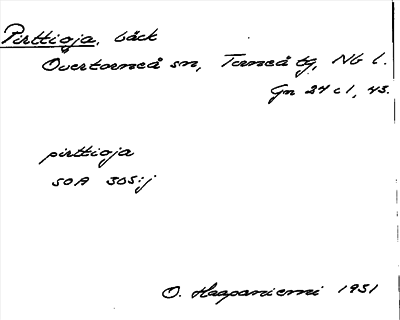 Pirttioja, bäck
Övertorneå sn, Torneå tg, Nb l.
Gn 24 c 1, 43.
pirttioja
SOA 305:j
O. Haapaniemi 1931